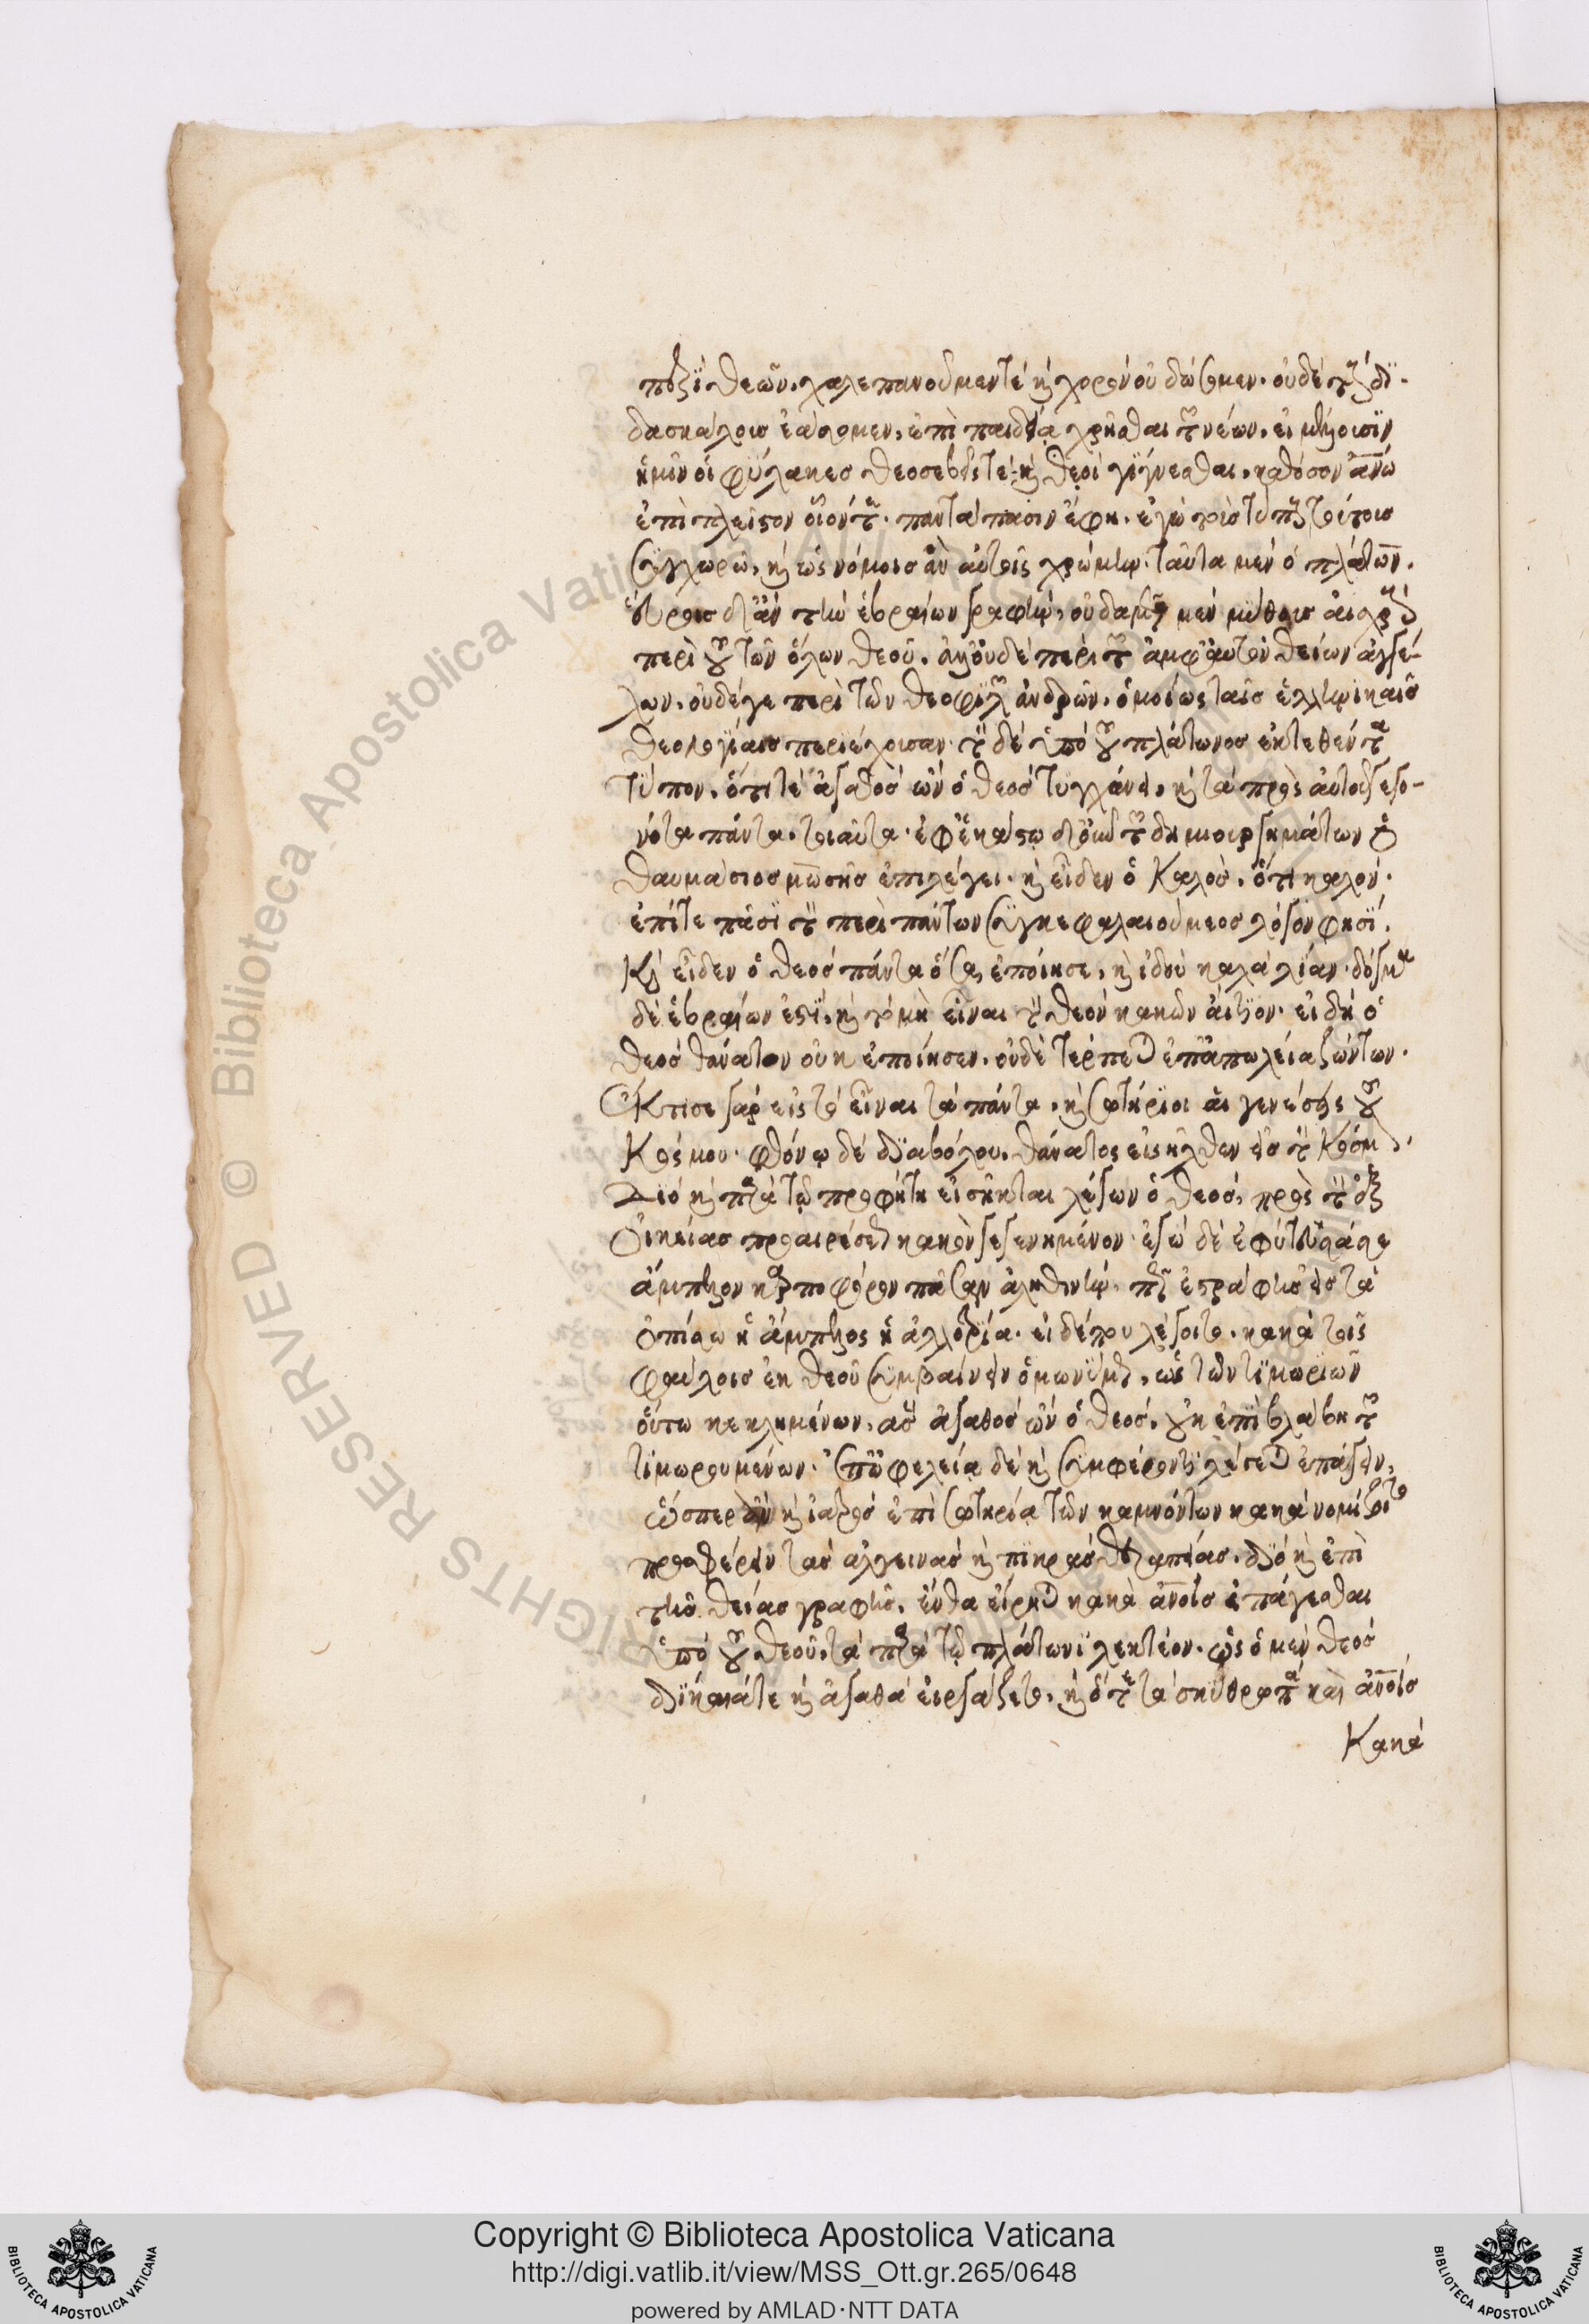 περὶ θεῶν, χαλεπανοῦμέν τε καὶ χορὸν οὐ δώσομεν. οὐδὲ τοῖς δι-
δασκάλοις ἐάσομεν, ἐπὶ παιδείᾳ χρῆσθαι τῶν νέων, εἰ μέλλουσιν
ἡμῖν οἱ φύλακες θεοσεβεῖς τε καὶ θεῖοι γίγνεσθαι, καθόσον ἀνθρώπῳ
ἐπὶ πλεῖστον οἷόν τε. παντάπασιν ἔφη. ἐγὼ τοὺς τύπους τούτους
συγχωρῶ, καὶ ὡς νόμοις ἂν αὐτοῖς χρώμην. ταῦτα μὲν ὁ πλάτων.
εὕροις δ' ἂν τὴν ἑβραίων γραφὴν, οὐδαμῶς μὲν μύθους αἰσχροὺς
περὶ τοῦ τῶν ὅλων θεοῦ, ἀλλ' οὐδὲ περὶ τῶν ἀμφ' αὐτὸν θείων ἀγγέ-
λων, οὐδέ γε περὶ τῶν θεοφιλῶν ἀνδρῶν, ὁμοίως ταῖς ἑλληνικαῖς
θεολογίαις περιέχουσαν. τὸν δὲ ὑπὸ τοῦ πλάτωνος ἐκτεθέντα
τύπον, ὅτι τὲ ἀγαθὸς ὢν ὁ θεὸς τυγχάνει, καὶ τὰ πρὸς αὐτοῦ γεγο-
νότα πάντα, τοιαῦτα. ἐφ' ἑκάστῳ δ' οὖν τῶν δημιουργημάτων ὁ
θαυμάσιος μωσῆς ἐπιλέγει. καὶ εἶδεν ὁ θεὸς, ὅτι καλόν.
ἐπί τε πᾶσι τὸν περὶ πάντων συγκεφαλαιούμενος λόγον φησί.
Καὶ εἶδεν ὁ θεὸς πάντα ὅσα ἐποίησε, καὶ ἰδοὺ καλὰ λίαν. δόγμα
δὲ ἑβραίων ἐστὶ, καὶ τὸ μὴ εἶναι τὸν θεὸν κακῶν αἴτιον. εἰ δὴ ὁ
θεὸς θάνατον οὐκ ἐποίησεν, οὐδὲ τέρπεται ἐπ' ἀπωλείᾳ ζώντων.
Ἔκτισε γὰρ εἰς τὸ εἶναι τὰ πάντα, καὶ σωτήριοι αἱ γενέσεις τοῦ
Κόσμου. φθόνῳ δὲ διαβόλου, θάνατος εἰσῆλθεν εἰς τὸν Κόσμον,
Διὸ καὶ παρὰ τῷ προφήτῃ εἰσῆκται λέγων ὁ θεὸς, πρὸς τὸν ἐξ
Οἰκείας προαιρέσεως κακὸν γεγενημένον. ἐγὼ δὲ ἐφύτευσά σε
ἄμπελον καρποφόρον πᾶσαν ἀληθινὴν. πῶς ἐστράφης εἰς τὰ
ὀπίσω ἡ ἄμπελος ἡ ἀλλοτρία. εἰ δέ που λέγοιτο, κακὰ τοῖς
φαύλοις ἐκ θεοῦ συμβαίνειν ὁμωνύμως, ὡς τῶν τιμωριῶν
οὕτω κεκλημένων, ἃς ἀγαθὸς ὢν ὁ θεὸς, οὐκ ἐπὶ βλάβῃ τῶν
τιμωρουμένων. ἐπ' ὠφελείᾳ δὲ καὶ συμφέροντι λέγεται ἐπάγειν,
ὥσπερ ἂν καὶ ἰατρὸς ἐπὶ σωτηρίᾳ τῶν καμνόντων κακὰ νομίζοιτο
προσφέρειν τὰς ἀλγεινὰς καὶ πικρὰς θεραπείας. διὸ καὶ ἐπὶ
τῆς θείας γραφῆς, ἔνθα εἴρηται κακὰ ἀνθρώποις ἐπάγεσθαι
ὑπὸ τοῦ θεοῦ, τὰ παρὰ τῷ πλάτωνι λεκτέον. ὡς ὁ μὲν θεὸς
δίκαιά τε καὶ ἀγαθὰ εἰργάζετο, καὶ ὅτε τὰ σκυθρωπὰ καὶ ἀνθρώποις
Κακὰ
Copyright © Biblioteca Apostolica Vaticana
http://digi.vatlib.it/view/MSS_Ott.gr.265/0648
powered by AMLAD·NTT DATA